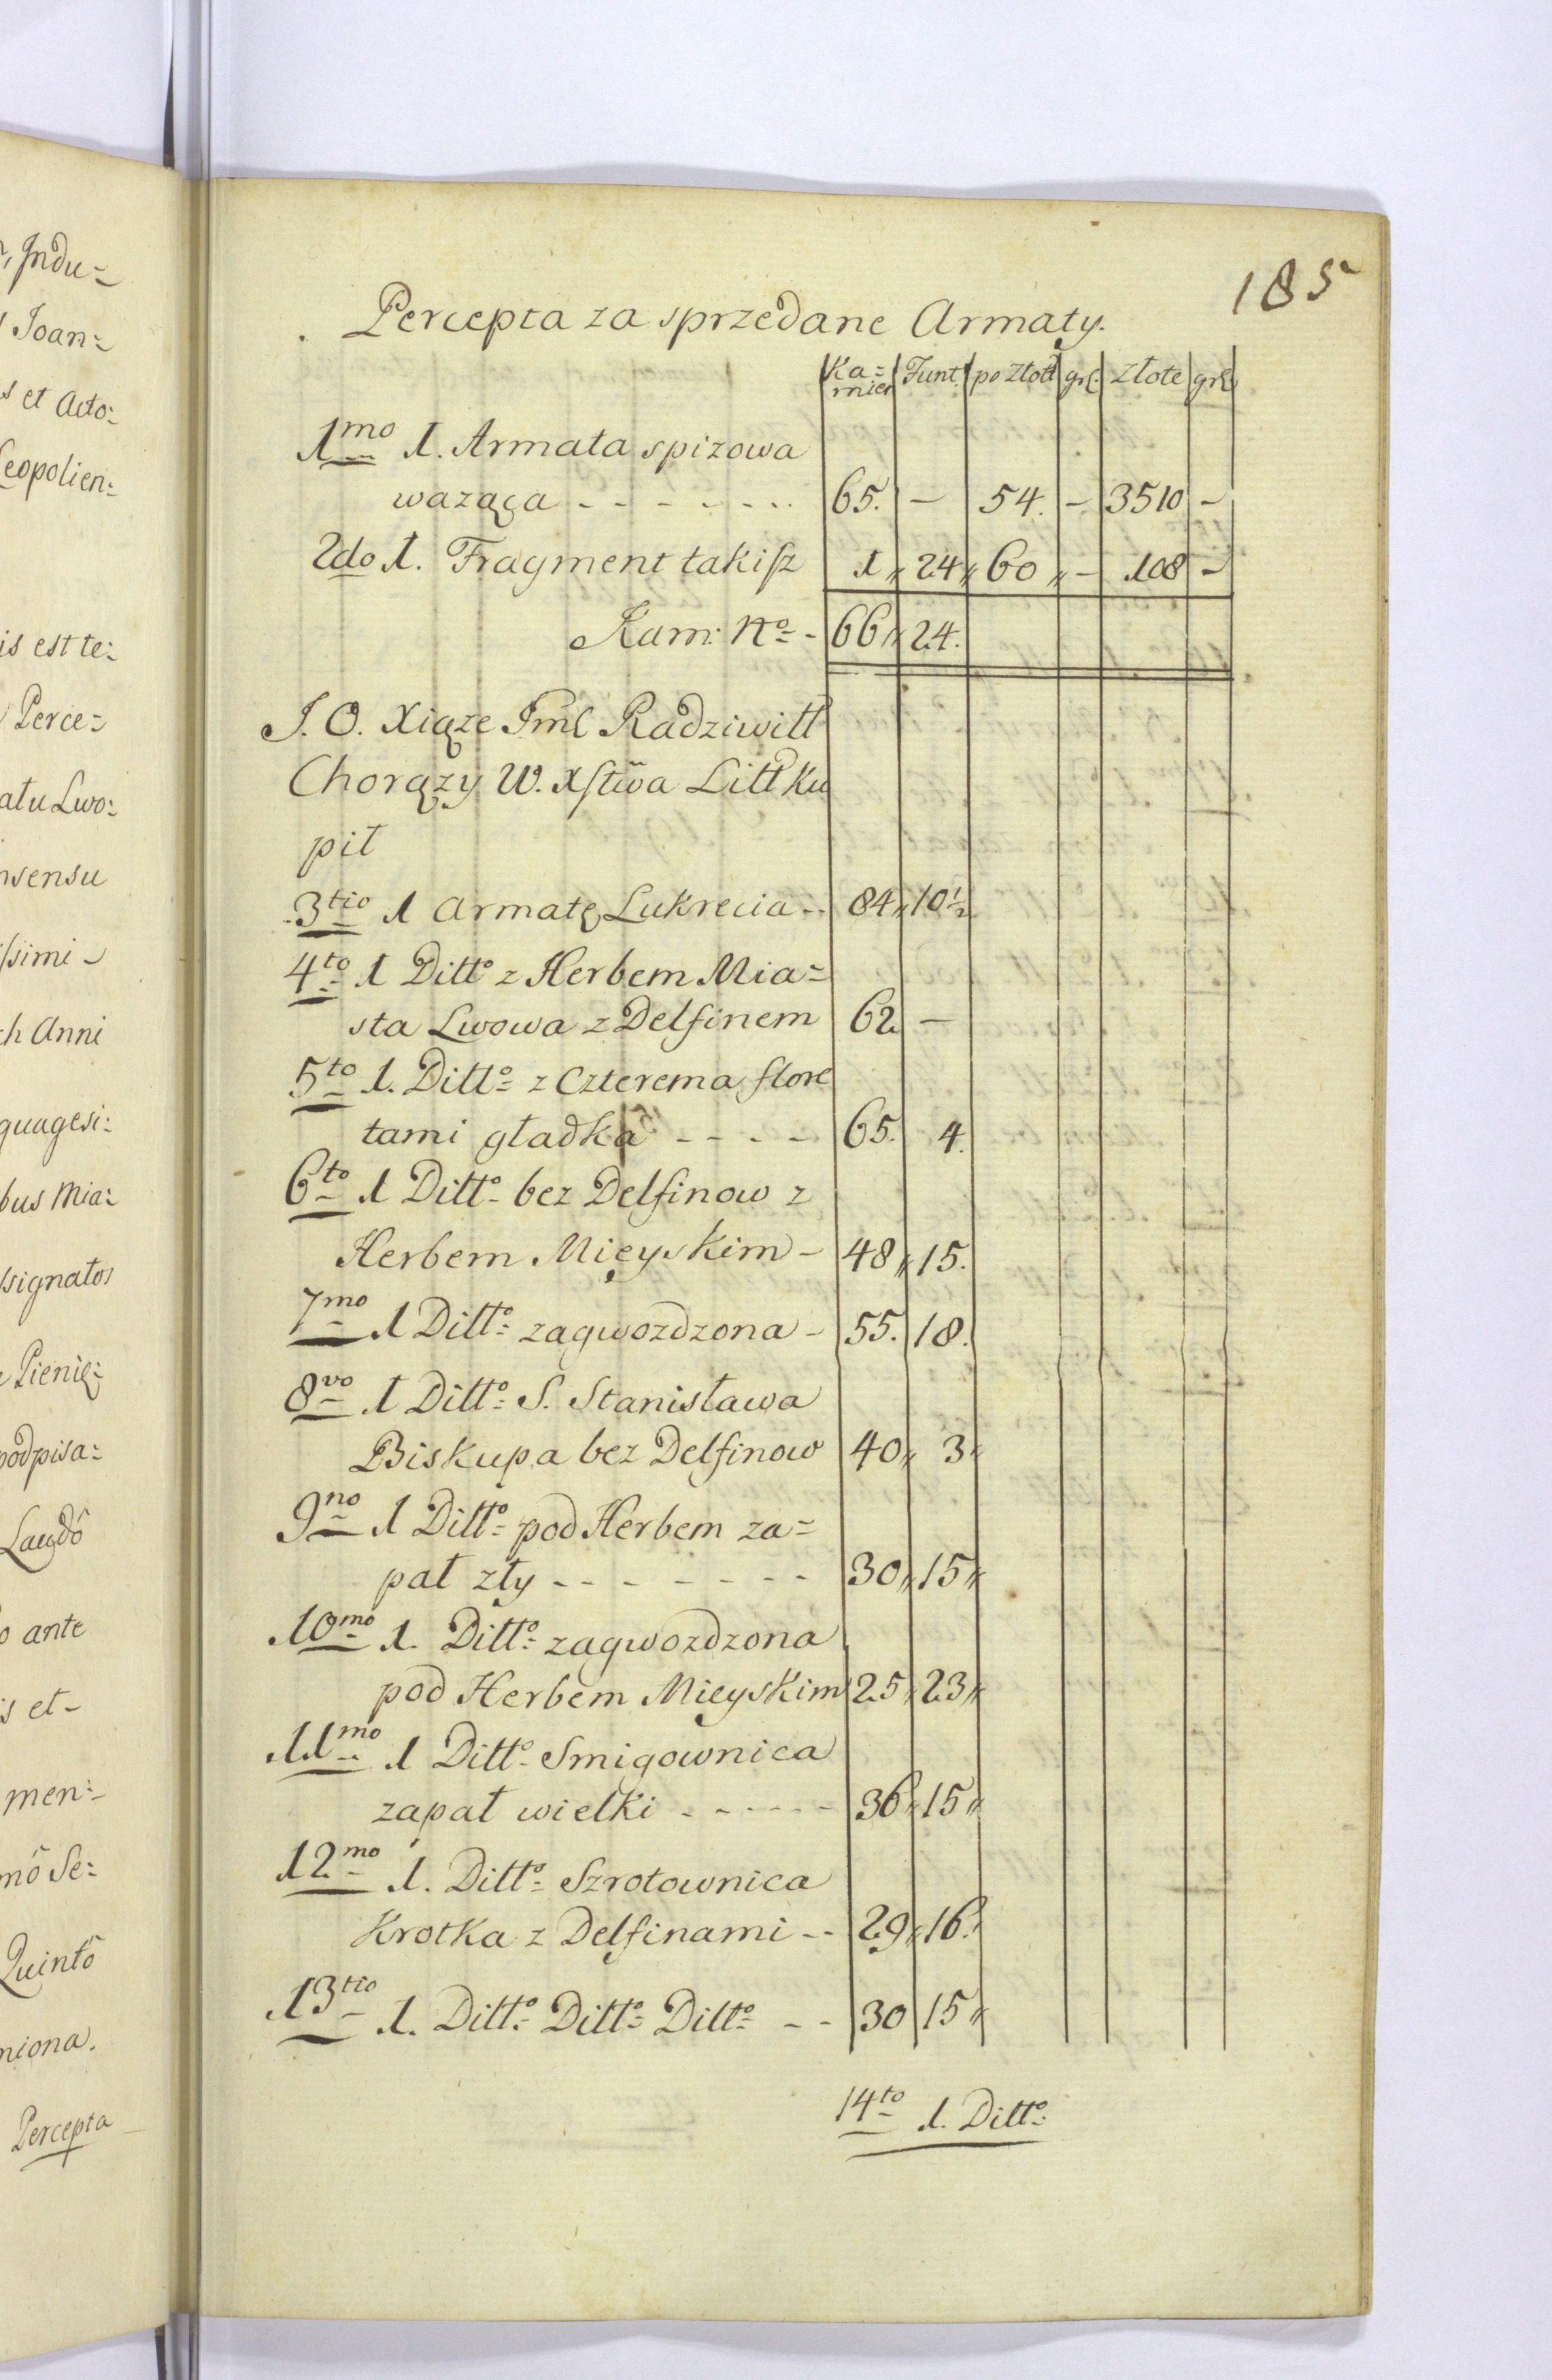 n, Indu=
s Joan=
s et Acto:
Leopolien:
is est te:
Perce=
atu Lwo:
nsensu
ſsimi -
ch Anni
quagesi:
bus Mia:
ſsignatos
Pienię:
podpisa:
Laudô
o ante
is et -
men:
mô Se:
Quintô
niona.
Percepta
185
Percepta za sprzedane Armaty.
Ka= mien | Funt. | po Złott | grſ. | złote | grſ
1mo 1. Armata spizowa
waząca - - - - - - - 65. - 54. - 3510 -
2do 1. Fragment takiſz 1 „ 24 „ 60 „ - 108 -
Kam: No - 66 „ 24.
J. O. Xiąze Jmć Radziwiłł
Chorązy W. Xſtwa Litt Ku
pił
3tio 1 Armatę Lukrecia - - 84 „ 10½
4to 1 Ditto z Herbem Mia=
sta Lwowa z Delfinem 62 -
5to 1. Ditto z Czterema flore
tami gładka - - - - 65. 4.
6to 1 Ditto bez Delfinow z
Herbem Mieyskim - 48 „ 15.
7mo 1 Ditto zagwozdzona - 55. 18.
8vo 1 Ditto S. Stanisława
Biskupa bez Delfinow 40 „ 3 „
9no 1 Ditto pod Herbem za=
pał zły - - - - - - - 30 „ 15 „
10mo 1. Ditto zagwozdzona
pod Herbem Mieyskim 25 „ 23 „
11mo 1 Ditto Smigownica
zapał wielki - - - - - 36 „ 15 „
12mo 1. Ditto Szrotownica
Krotka z Delfinami - - 29 „ 16.
13tio 1. Ditto Ditto Ditto - - 30 15 „
14to 1. Ditto